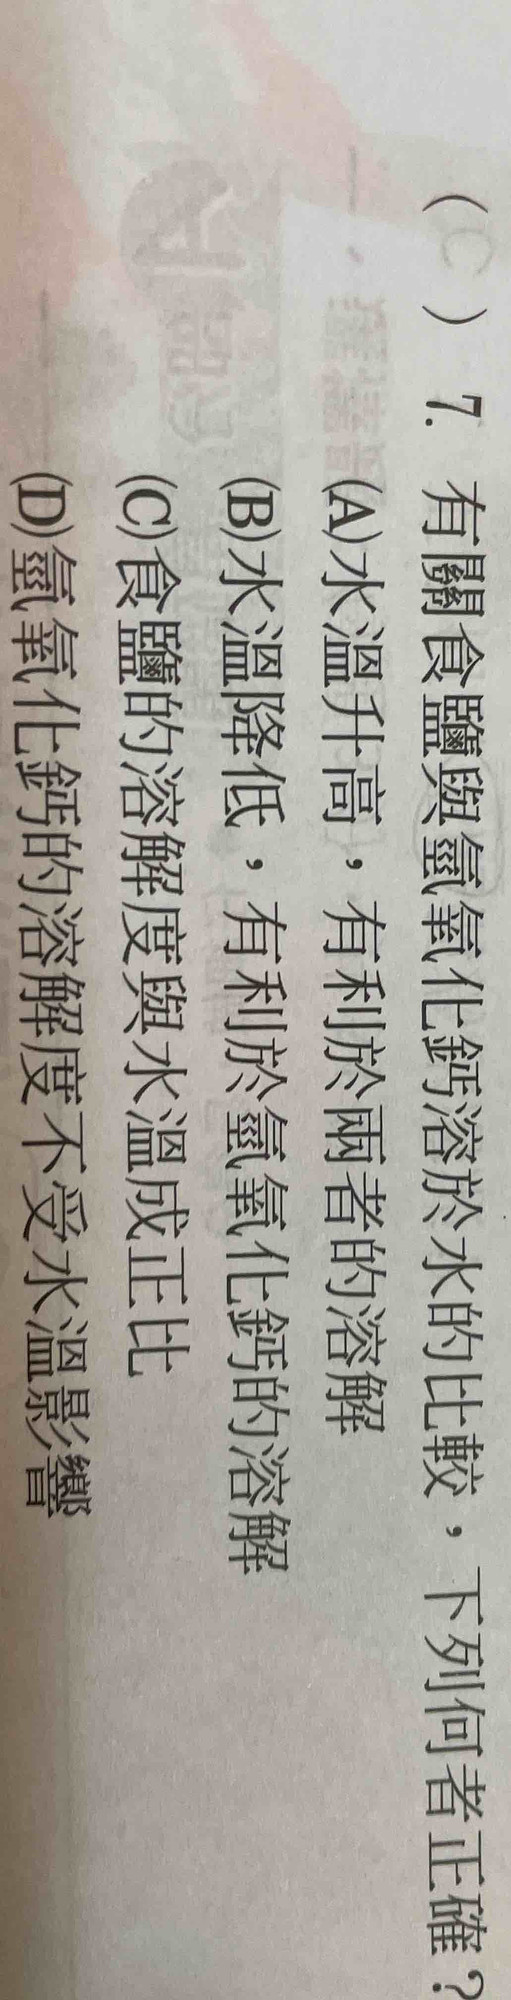 ( C ) 7. 有關食鹽與氫氧化鈣溶於水的比較，下列何者正確？
(A)水溫升高，有利於兩者的溶解
(B)水溫降低，有利於氫氧化鈣的溶解
(C)食鹽的溶解度與水溫成正比
(D)氫氧化鈣的溶解度不受水溫影響